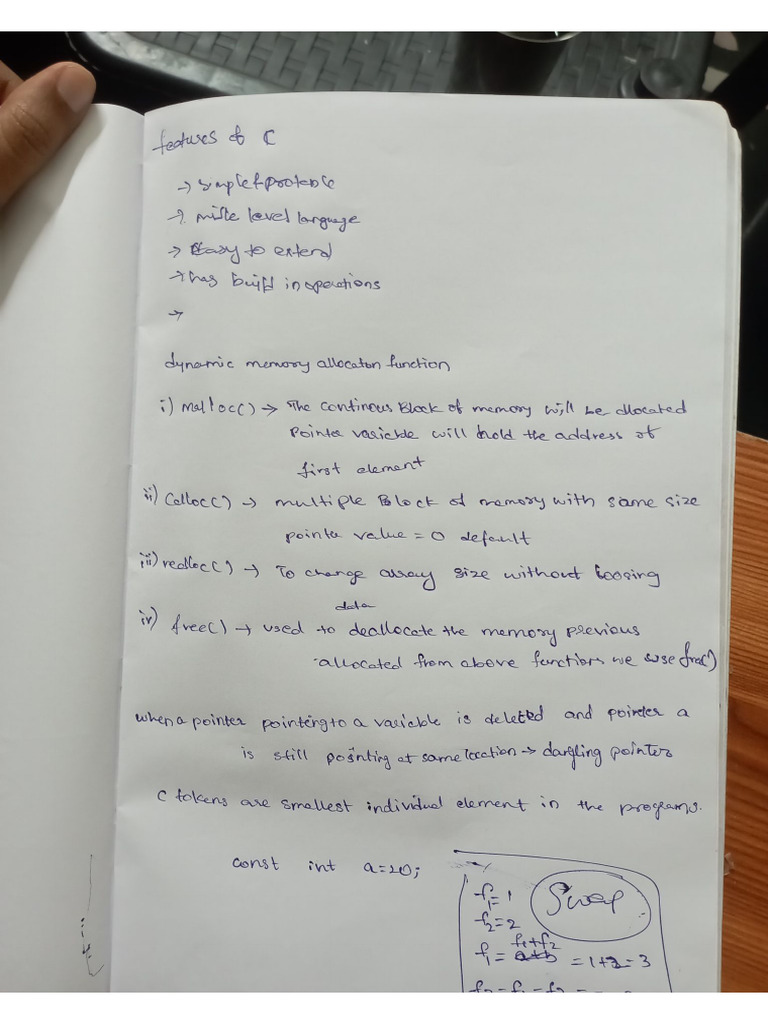 features of C
→ simple & proteble
→ midle level language
→ Easy to extend
→ has build in operations
→
dynamic memory allocaton function
i) malloc() → The continous Block of memory will be allocated
Pointer variable will hold the address of
first element
ii) Calloc() → multiple Block of memory with same size
pointer value = 0 default
iii) realloc() → To change array size without loosing
data
iv) free() → used to deallocate the memory previous
allocated from above functions we use free()
when a pointer pointing to a variable is deleted and pointer a
is still pointing at same location → dangling pointer
C tokens are smallest individual element in the programs.
const int a=20;
Swap
f1=1
f2=2
f1+f2
f1= a+b =1+2=3
f2=f1-f2=